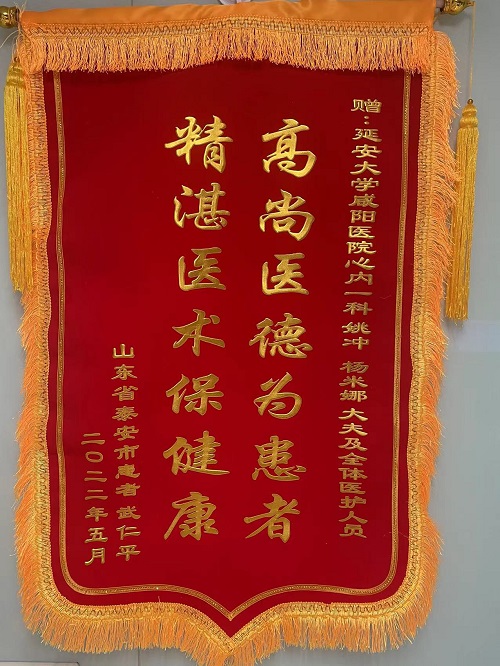 赠：延安大学咸阳医院心内一科 姚冲 杨米娜大夫及全体医护人员
高尚医德为患者
精湛医术保健康
山东省泰安市患者 武仁平
二〇二二年五月